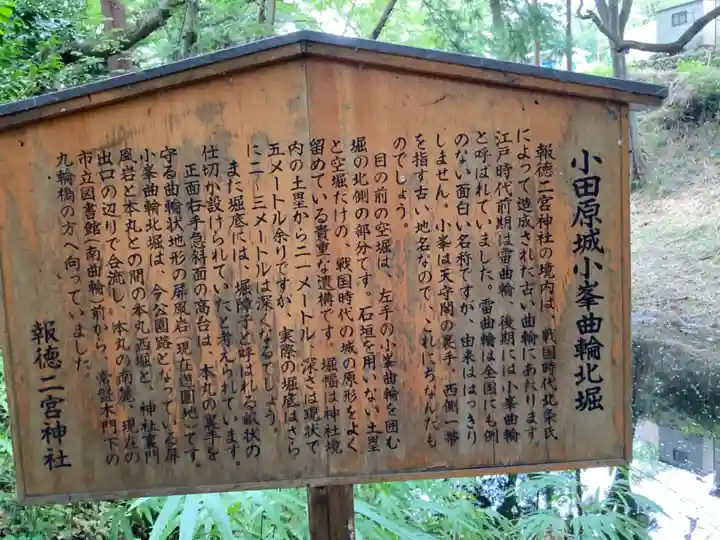 小田原城小峯曲輪北堀
報徳二宮神社の境内は、戦国時代北条氏
によって造成された古い曲輪にあたります。
江戸時代前期は雷曲輪、後期には小峯曲輪
と呼ばれていました。雷曲輪は全国にも例
のない面白い名称ですが、由来ははっきり
しません。小峯は天守閣の裏手、西側一帯
を指す古い地名なので、これにちなんだも
のでしょう。
目の前の空堀は、左手の小峯曲輪を囲む
堀の北側の部分です。石垣を用いない土塁
と空堀だけの、戦国時代の城の原形をよく
留めている貴重な遺構です。堀幅は神社境
内の土塁から二一メートル、深さは現状で
五メートル余りですが、実際の堀底はさら
に二〜三メートルは深くなるでしょう。
また堀底には、堀障子と呼ばれる畝状の
仕切が設けられていたと考えられています。
正面右手急斜面の高台は、本丸の裏手を
守る曲輪状地形の屏風岩(現在遊園地)です。
小峯曲輪北堀は、今公園路となっている屏
風岩と本丸との間の本丸西堀と、神社裏門
出口の辺りで合流し、本丸の南麓、現在の
市立図書館(南曲輪)前から、常盤木門下の
九輪橋の方へ向っていました。
報徳二宮神社